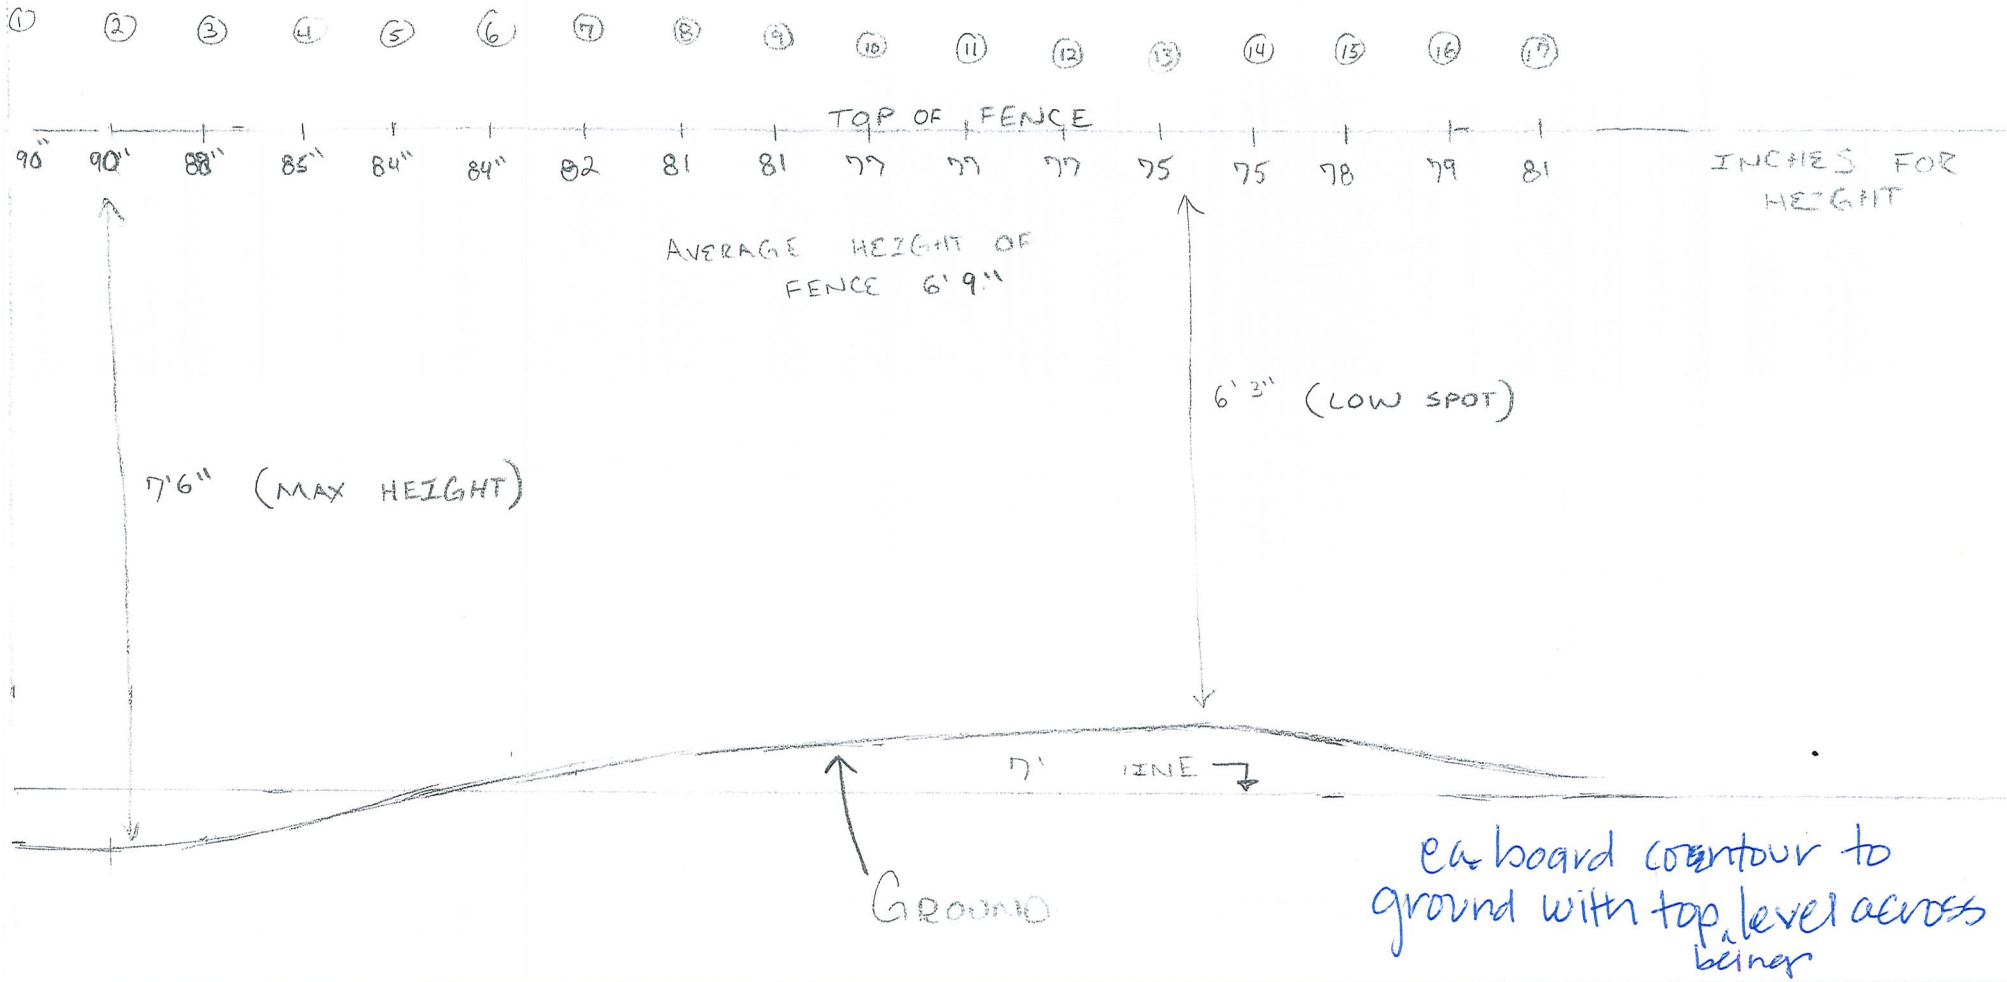 ① ② ③ ④ ⑤ ⑥ ⑦ ⑧ ⑨ ⑩ ⑪ ⑫ ⑬ ⑭ ⑮ ⑯ ⑰
TOP OF FENCE
90" 90" 88" 85" 84" 84" 82 81 81 77 77 77 75 75 78 79 81
INCHES FOR
HEIGHT
AVERAGE HEIGHT OF
FENCE 6'9"
6'3" (LOW SPOT)
7'6" (MAX HEIGHT)
7' LINE
GROUND
ea. board contour to
ground with top level across
being